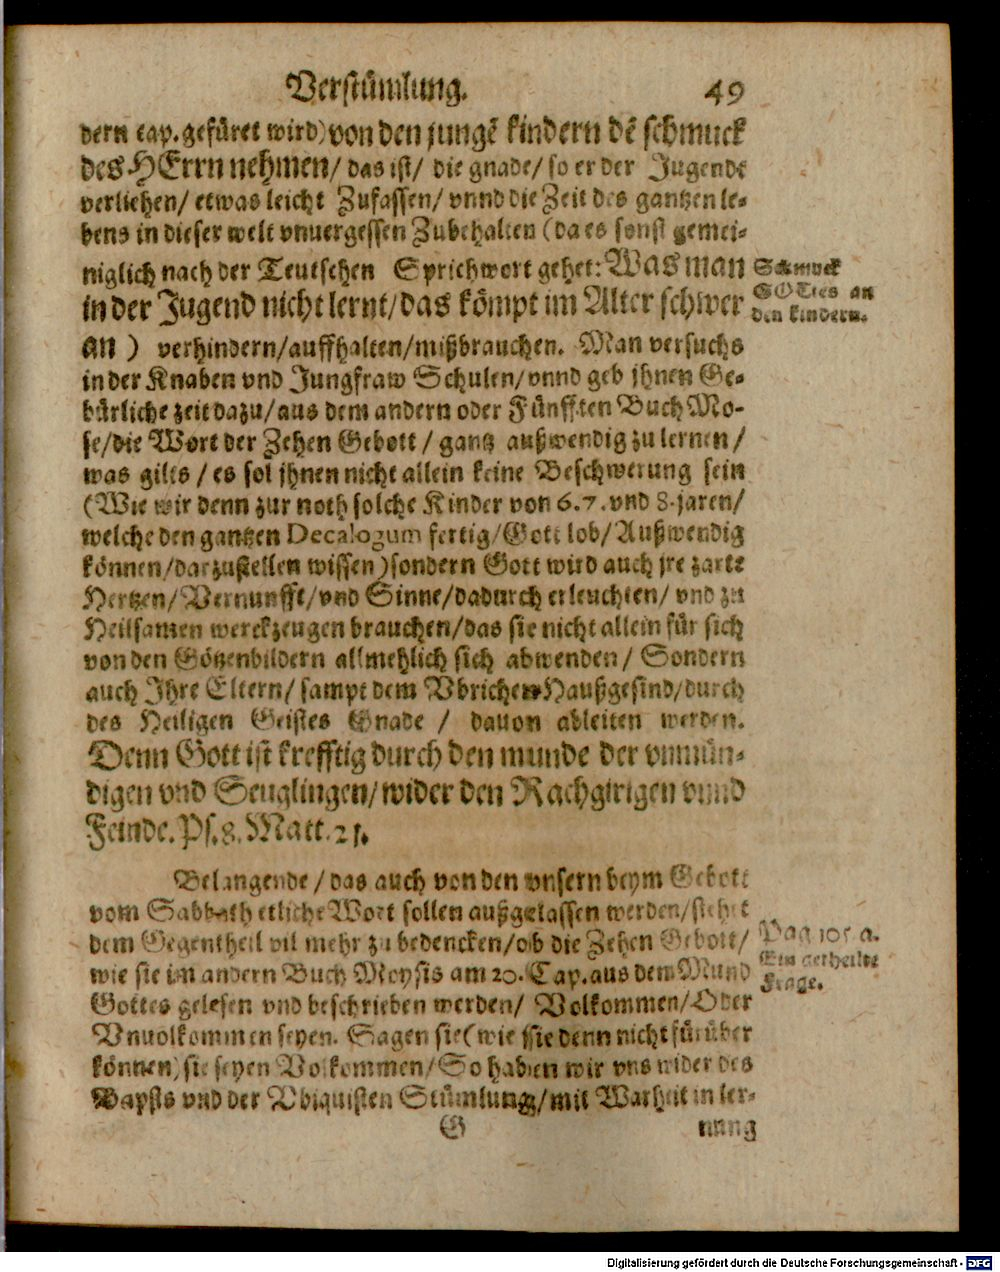 Verstümlung. 49
dern cap. gefüret wird) von den jungẽ kindern dẽ schmuck
des HErrn nehmen/ das ist/ die gnade/ so er der Jugende
verliehen/ etwas leicht Zufassen/ vnnd die Zeit des gantzen le-
bens in dieser welt vnuergessen Zubehalten (da es sonst gemei-
niglich nach der Teutschen Sprichwort gehet: Was man
Schmuck
in der Jugend nicht lernt/ das kömpt im Alter schwer
GOTtes an
den kindern.
an ) verhindern/ auffhalten/ mißbrauchen. Man versuchs
in der Knaben vnd Jungfraw Schulen/ vnnd geb jhnen Ge-
bürliche zeit dazu/ aus dem andern oder Fünfften Buch Mo-
se/ die Wort der Zehen Gebott / gantz außwendig zu lernen /
was gilts / es sol jhnen nicht allein keine Beschwerung sein
(Wie wir denn zur noth solche Kinder von 6. 7. vnd 8. jaren/
welche den gantzen Decalogum fertig/ Gott lob/ Außwendig
können/ darzustellen wissen) sondern Gott wird auch jre zarte
Hertzen/ Vernunfft/ vnd Sinne/ dadurch erleuchten/ vnd zu
Heilsamen werckzeugen brauchen/ das sie nicht allein für sich
von den Götzenbildern allmehlich sich abwenden/ Sondern
auch Ihre Eltern/ sampt dem Vbrichen Haußgesind/ durch
des Heiligen Geistes Gnade / dauon ableiten werden.
Denn Gott ist krefftig durch den munde der vnmün-
digen vnd Seuglingen/ wider den Rachgirigen vnnd
Feinde. Ps. 8. Matt. 21.
Belangende / das auch von den vnsern beym Gebott
vom Sabbath etliche Wort sollen außgelassen werden/ stehet
dem Gegentheil vil mehr zu bedencken/ ob die Zehen Gebott/
Pag 105 a.
wie sie im andern Buch Moysis am 20. Cap. aus dem Mund
Ein getheilte
Frage.
Gottes gelesen vnd beschrieben werden/ Volkommen/ Oder
Vnuolkommen seyen. Sagen sie (wie sie denn nicht fürüber
können) sie seyen Volkommen/ So haben wir vns wider des
Bapsts vnd der Vbiquisten Stümlung/ mit Warheit in ler-
G nung
Digitalisierung gefördert durch die Deutsche Forschungsgemeinschaft - DFG